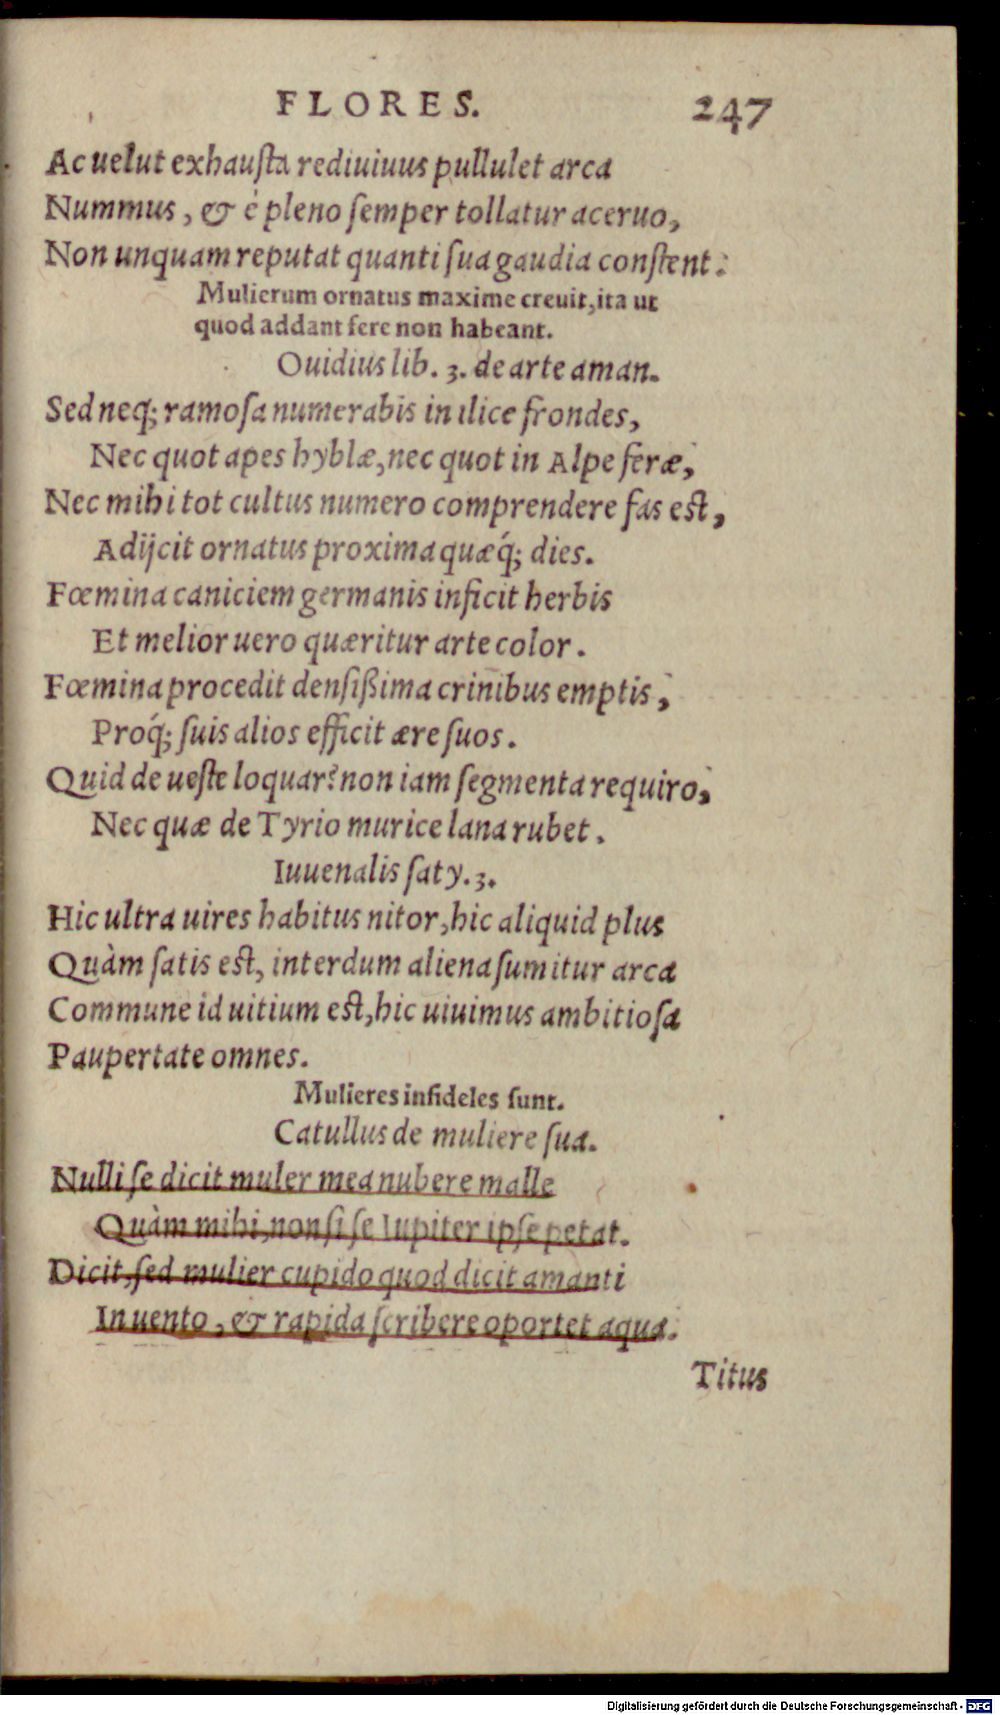 FLORES. 247
Ac uelut exhausta rediuiuus pullulet arca
Nummus, & è pleno semper tollatur aceruo,
Non unquam reputat quanti sua gaudia constent.
Mulierum ornatus maxime creuit, ita ut
quod addant fere non habeant.
Ouidius lib. 3. de arte aman.
Sed neq; ramosa numerabis in ilice frondes,
Nec quot apes hyblæ, nec quot in Alpe feræ,
Nec mihi tot cultus numero comprendere fas est,
Adijcit ornatus proxima quæq́; dies.
Fœmina caniciem germanis inficit herbis
Et melior uero quæritur arte color.
Fœmina procedit densißima crinibus emptis,
Proq́; suis alios efficit ære suos.
Quid de ueste loquar? non iam segmenta requiro,
Nec quæ de Tyrio murice lana rubet.
Iuuenalis saty. 3.
Hic ultra uires habitus nitor, hic aliquid plus
Quàm satis est, interdum aliena sumitur arca
Commune id uitium est, hic uiuimus ambitiosa
Paupertate omnes.
Mulieres infideles sunt.
Catullus de muliere sua.
Nulli se dicit muler mea nubere malle
Quàm mihi, non si se Iupiter ipse petat.
Dicit, sed mulier cupido quod dicit amanti
In uento, & rapida scribere oportet aqua.
Titus
Digitalisierung gefördert durch die Deutsche Forschungsgemeinschaft - DFG